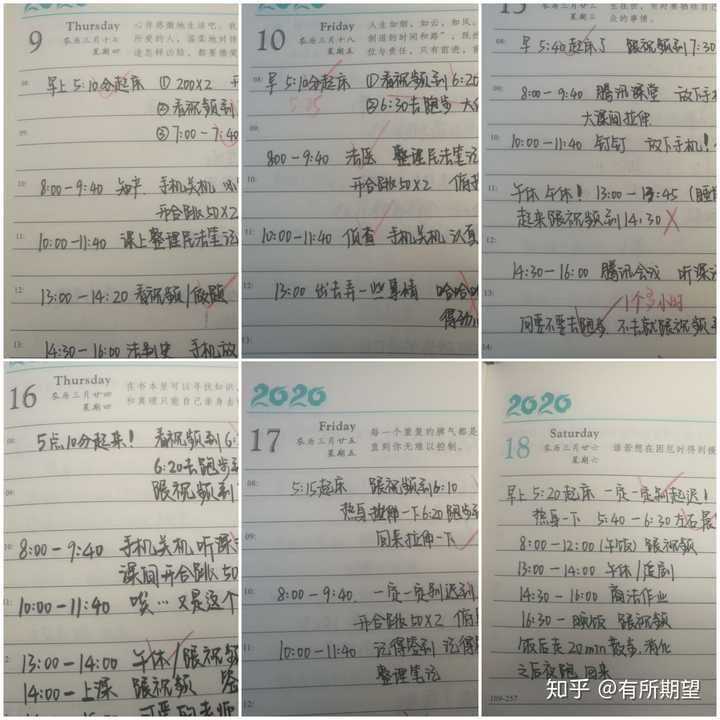 2020
9 Thursday
农历三月十七
星期四
早上 5:10分起床 ① 200×2
② 看视频到
③ 7:00-7:40
8:00-9:40 知产 手机关机
开合跳50×2
10:00-11:40 课上整理民法笔记
13:00-14:20 看视频/做题
14:30-16:00 法制史 手机放
2020
10 Friday
农历三月十八
星期五
人生如烟,如云,如风,
早 5:10分起床 ①看视频到6:20
②6:30去跑步
800-9:40 法医 整理民法笔记
开合跳50×2
10:00-11:40 侦查 手机关机 认真
13:00 出去弄一些事情 哈哈哈
农历三月廿三
星期三
早 5:40起床了 跟视频到7:30
8:00-9:40 腾讯课堂 放下手
大课间拉伸
10:00-11:40 钉钉 放下手机!
午休午休! 13:00-13:45
起来跟视频到14:30
14:30-16:00 腾讯会议 听课
1个多小时
问要不要去跑步,不去就跟视频
16 Thursday
农历三月廿四
星期四
在书本里可以寻找知识,
5点10分起来! 看视频到6:
6:20去跑步
跟视频到
8:00-9:40 手机关机 听课
课间开合跳50
10:00-11:40 唉…又是这个
13:00-14:00 午休/跟视频
14:00-上课 跟视频
可爱的老师
2020
17 Friday
农历三月廿五
星期五
每一个重复的脾气都是
直到你无难以控制。
5:15起床 跟视频到6:10
热身拉伸一下6:20跑步
回来拉伸一下
8:00-9:40 一定一定别迟到
开合跳50×2
10:00-11:40 记得签到 记得
整理笔记
2020
18 Saturday
农历三月廿六
星期六
谁若想在困厄时得到援
早上 5:20起床 一定一定别起迟!
热身一下 5:40-6:30左右晨
8:00-12:00 (午饭) 跟视频
13:00-14:00 午休/追剧
14:30-16:00 商法作业
16:30-晚饭 跟视频
饭后走20min散步,消化
之后夜跑 回来
109-257
知乎 @有所期望